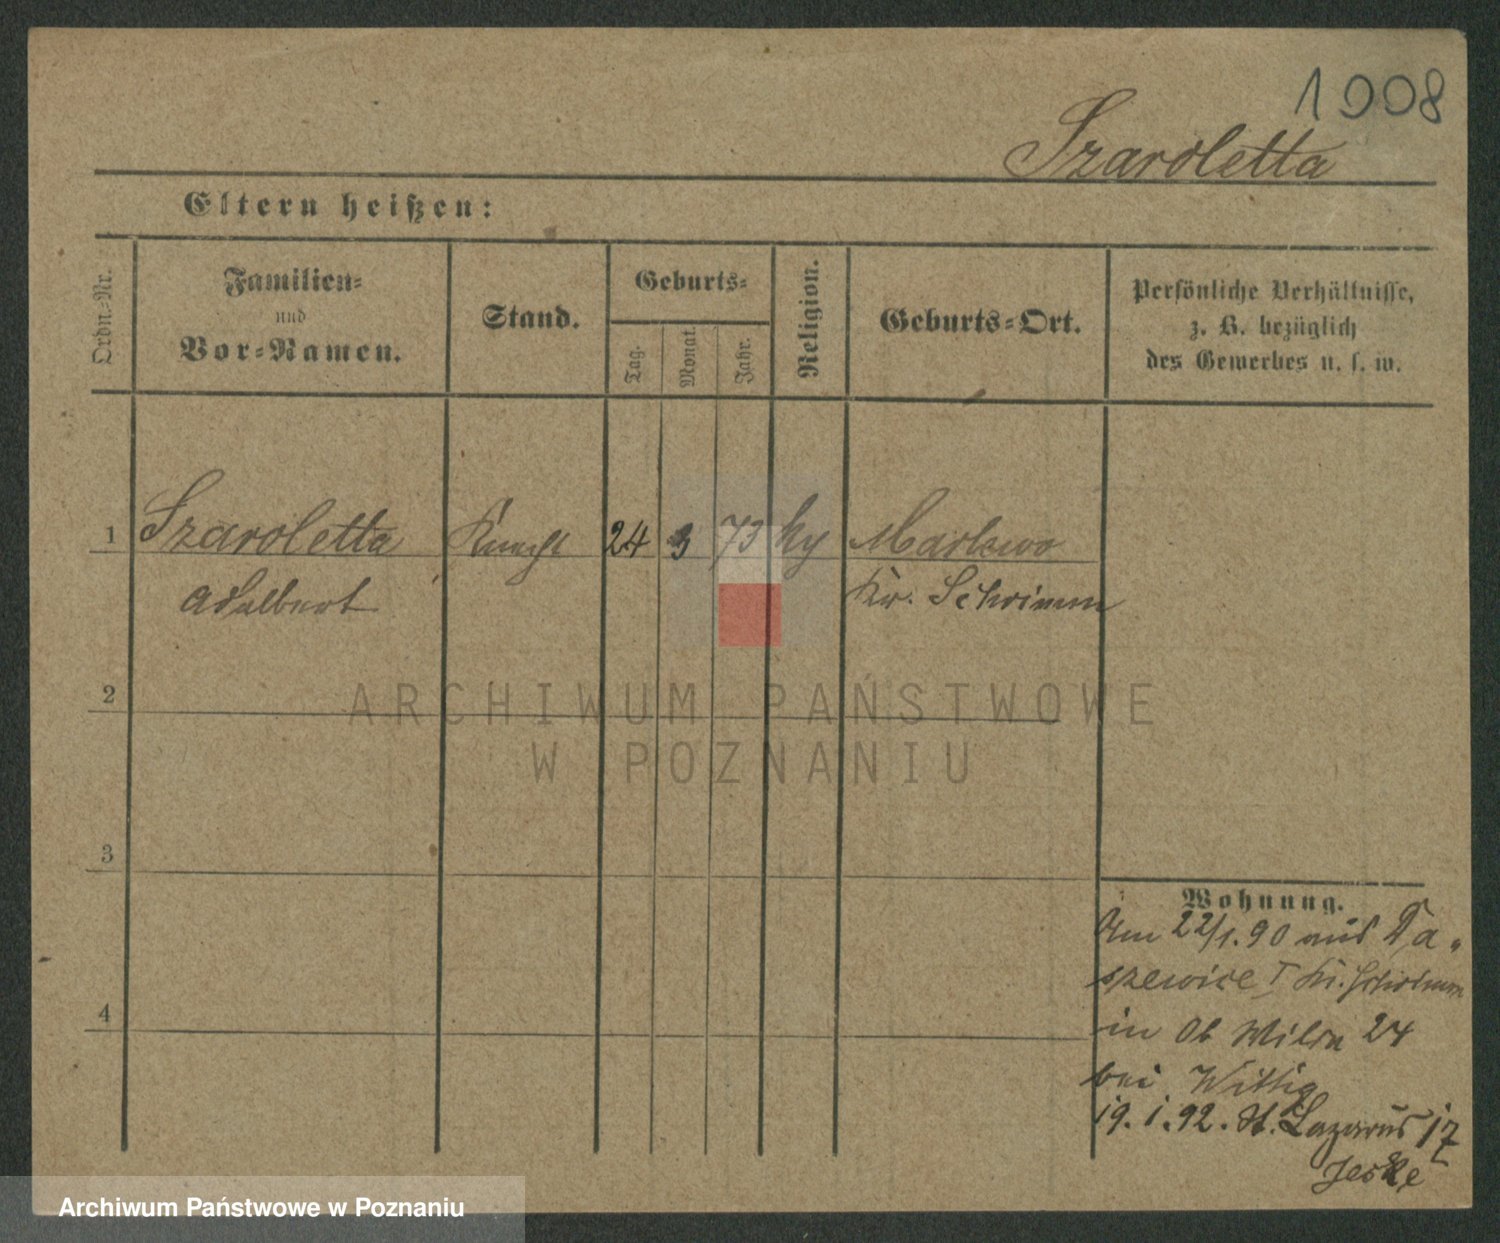 1008
Szaroletta
Eltern heißen:
Ordn.-Nr.
Familien-
und
Vor-Namen.
Stand.
Geburts-
Tag.
Monat.
Jahr.
Religion.
Geburts-Ort.
Persönliche Verhältnisse,
z. B. bezüglich
des Gewerbes u. s. w.
1 Szaroletta Knecht 24 3 73 ky
Adalbert Kr. Schrimm
2
ARCHIWUM PAŃSTWOWE
W POZNANIU
3
4
Wohnung.
Am 22/1. 90 aus
I Kr. Schrimm
in Ob Wilda 24
bei Wittig
19. 1. 92. St. Lazarus 17
Jeske
Archiwum Państwowe w Poznaniu